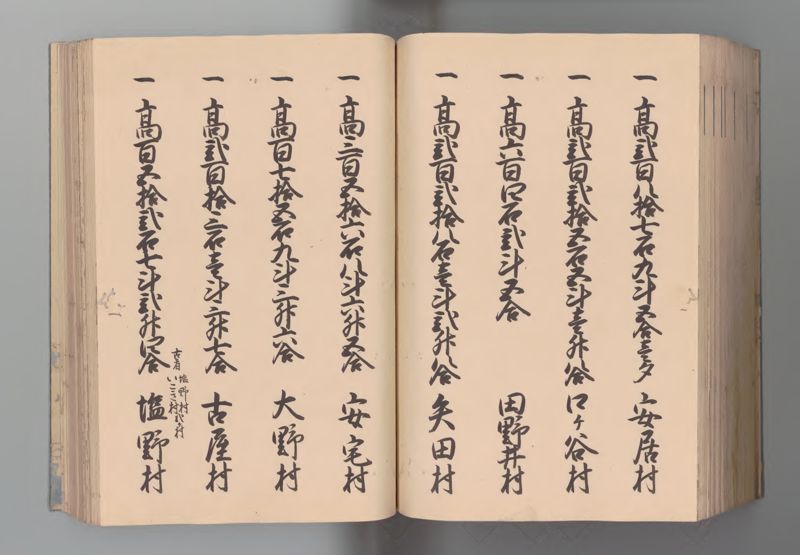 一 高弐百八拾七石九斗五合壱夕 安居村
一 高弐百弐拾五石五斗壱升八合 口ヶ谷村
一 高六百四石弐斗五合 田野井村
一 高弐百弐拾八石壱斗弐升八合 矢田村
一 高三百五拾六石八斗六升五合 安宅村
一 高百七拾五石九斗三升六合 大野村
一 高弐百拾三石壱斗三升七合 古屋村
古者 塩野村
いこき村
一 高百五拾弐石七斗弐升四合 塩野村